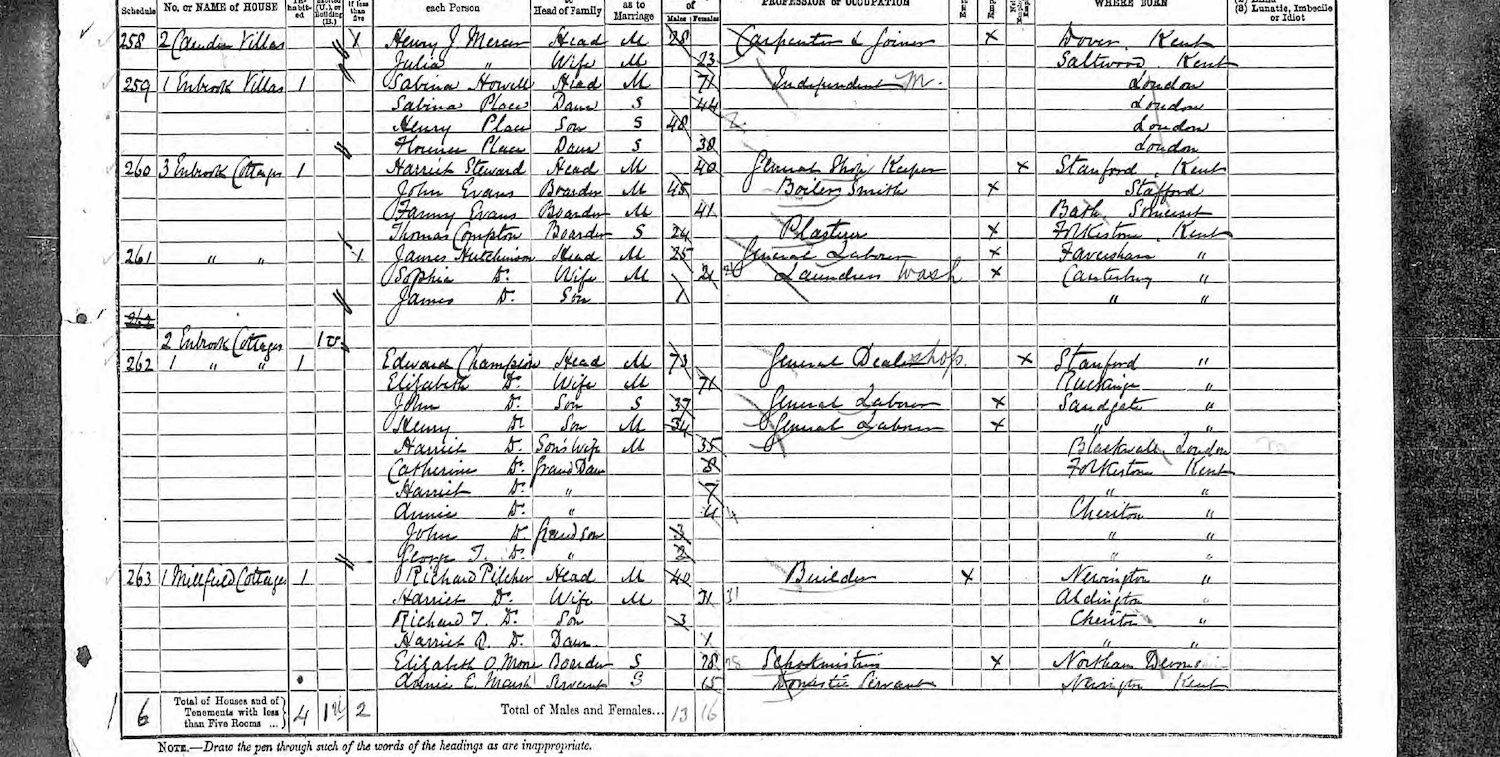 Schedule No. or NAME of HOUSE each Person Head of Family as to Marriage Males Females PROFESSION or OCCUPATION WHERE BORN (3) Lunatic, Imbecile or Idiot
258 2 Villas X Henry J. Mercer Head M 28 Carpenter & Joiner X Dover Kent
Julia " Wife M 23 Saltwood Kent
259 1 Enbrook Villas 1 Sabina Howell Head M 71 Independent London
Sabina Place Daur S 44 London
Henry Place Son S 48 London
Florence Place Daur S 38 London
260 3 Enbrook Cottages 1 Harriet Steward Head M 40 General Shop Keeper X Stanford Kent
John Evans Boarder M 45 Boiler Smith X Stafford
Fanny Evans Boarder M 41 Bath Somerset
Thomas Compton Boarder S 24 Plasterer X Folkestone Kent
261 " " X James Hutchinson Head M 25 General Labourer X Faversham "
Sophia Do. Wife M 21 Laundress Wash X Canterbury "
James Do. Son 1 " "
262
2 Enbrook Cottages 1 U.
262 1 " " 1 Edward Champion Head M 73 General Dealer shop. X Stanford "
Elizabeth Do. Wife M 71 Ruckinge "
John Do. Son S 37 General Labourer X Sandgate "
Henry Do. Son M 34 General Labourer X " "
Harriet Do. Son's Wife M 35 Blackwall London
Catherine Do. Grand Daur 8 Folkestone Kent
Harriet Do. " 7 " "
Annie Do. " 4 Cheriton "
John Do. Grand son 3 " "
George T. Do. " 2 " "
263 1 Millfield Cottages 1 Richard Pilcher Head M 40 Builder X Newington "
Harriet Do. Wife M 31 31 Aldington "
Richard T. Do. Son 3 Cheriton "
Harriet R. Do. Daur 1 " "
Elizabeth O. Boarder S 28 28 Schoolmistress X Northam Devon
Annie E. Marsh Servant S 15 Domestic Servant Newington Kent
6 Total of Houses and of Tenements with less than Five Rooms ... 4 1 U 2 Total of Males and Females... 13 16
NOTE.—Draw the pen through such of the words of the headings as are inappropriate.